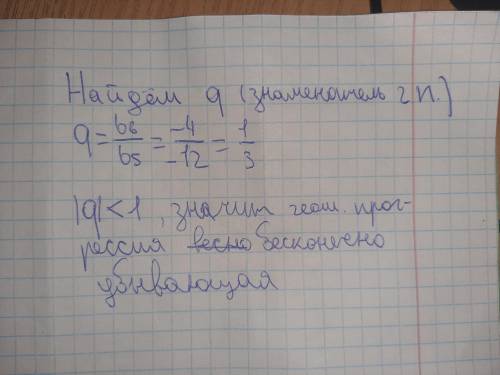 Найдём q (знаменатель г.п.)
q = b6/b5 = -4/-12 = 1/3
|q| < 1, значит геом. прог-
рессия бесконечно
убывающая